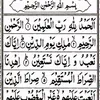 بِسْمِ اللّٰهِ الرَّحْمٰنِ الرَّحِيْمِ
اَلْحَمْدُ لِلّٰهِ رَبِّ الْعٰلَمِيْنَ الرَّحْمٰنِ
الرَّحِيْمِ مٰلِكِ يَوْمِ الدِّيْنِ اِيَّاكَ
نَعْبُدُ وَاِيَّاكَ نَسْتَعِيْنُ اِهْدِنَا
الصِّرَاطَ الْمُسْتَقِيْمَ صِرَاطَ الَّذِيْنَ
اَنْعَمْتَ عَلَيْهِمْ غَيْرِ الْمَغْضُوْبِ